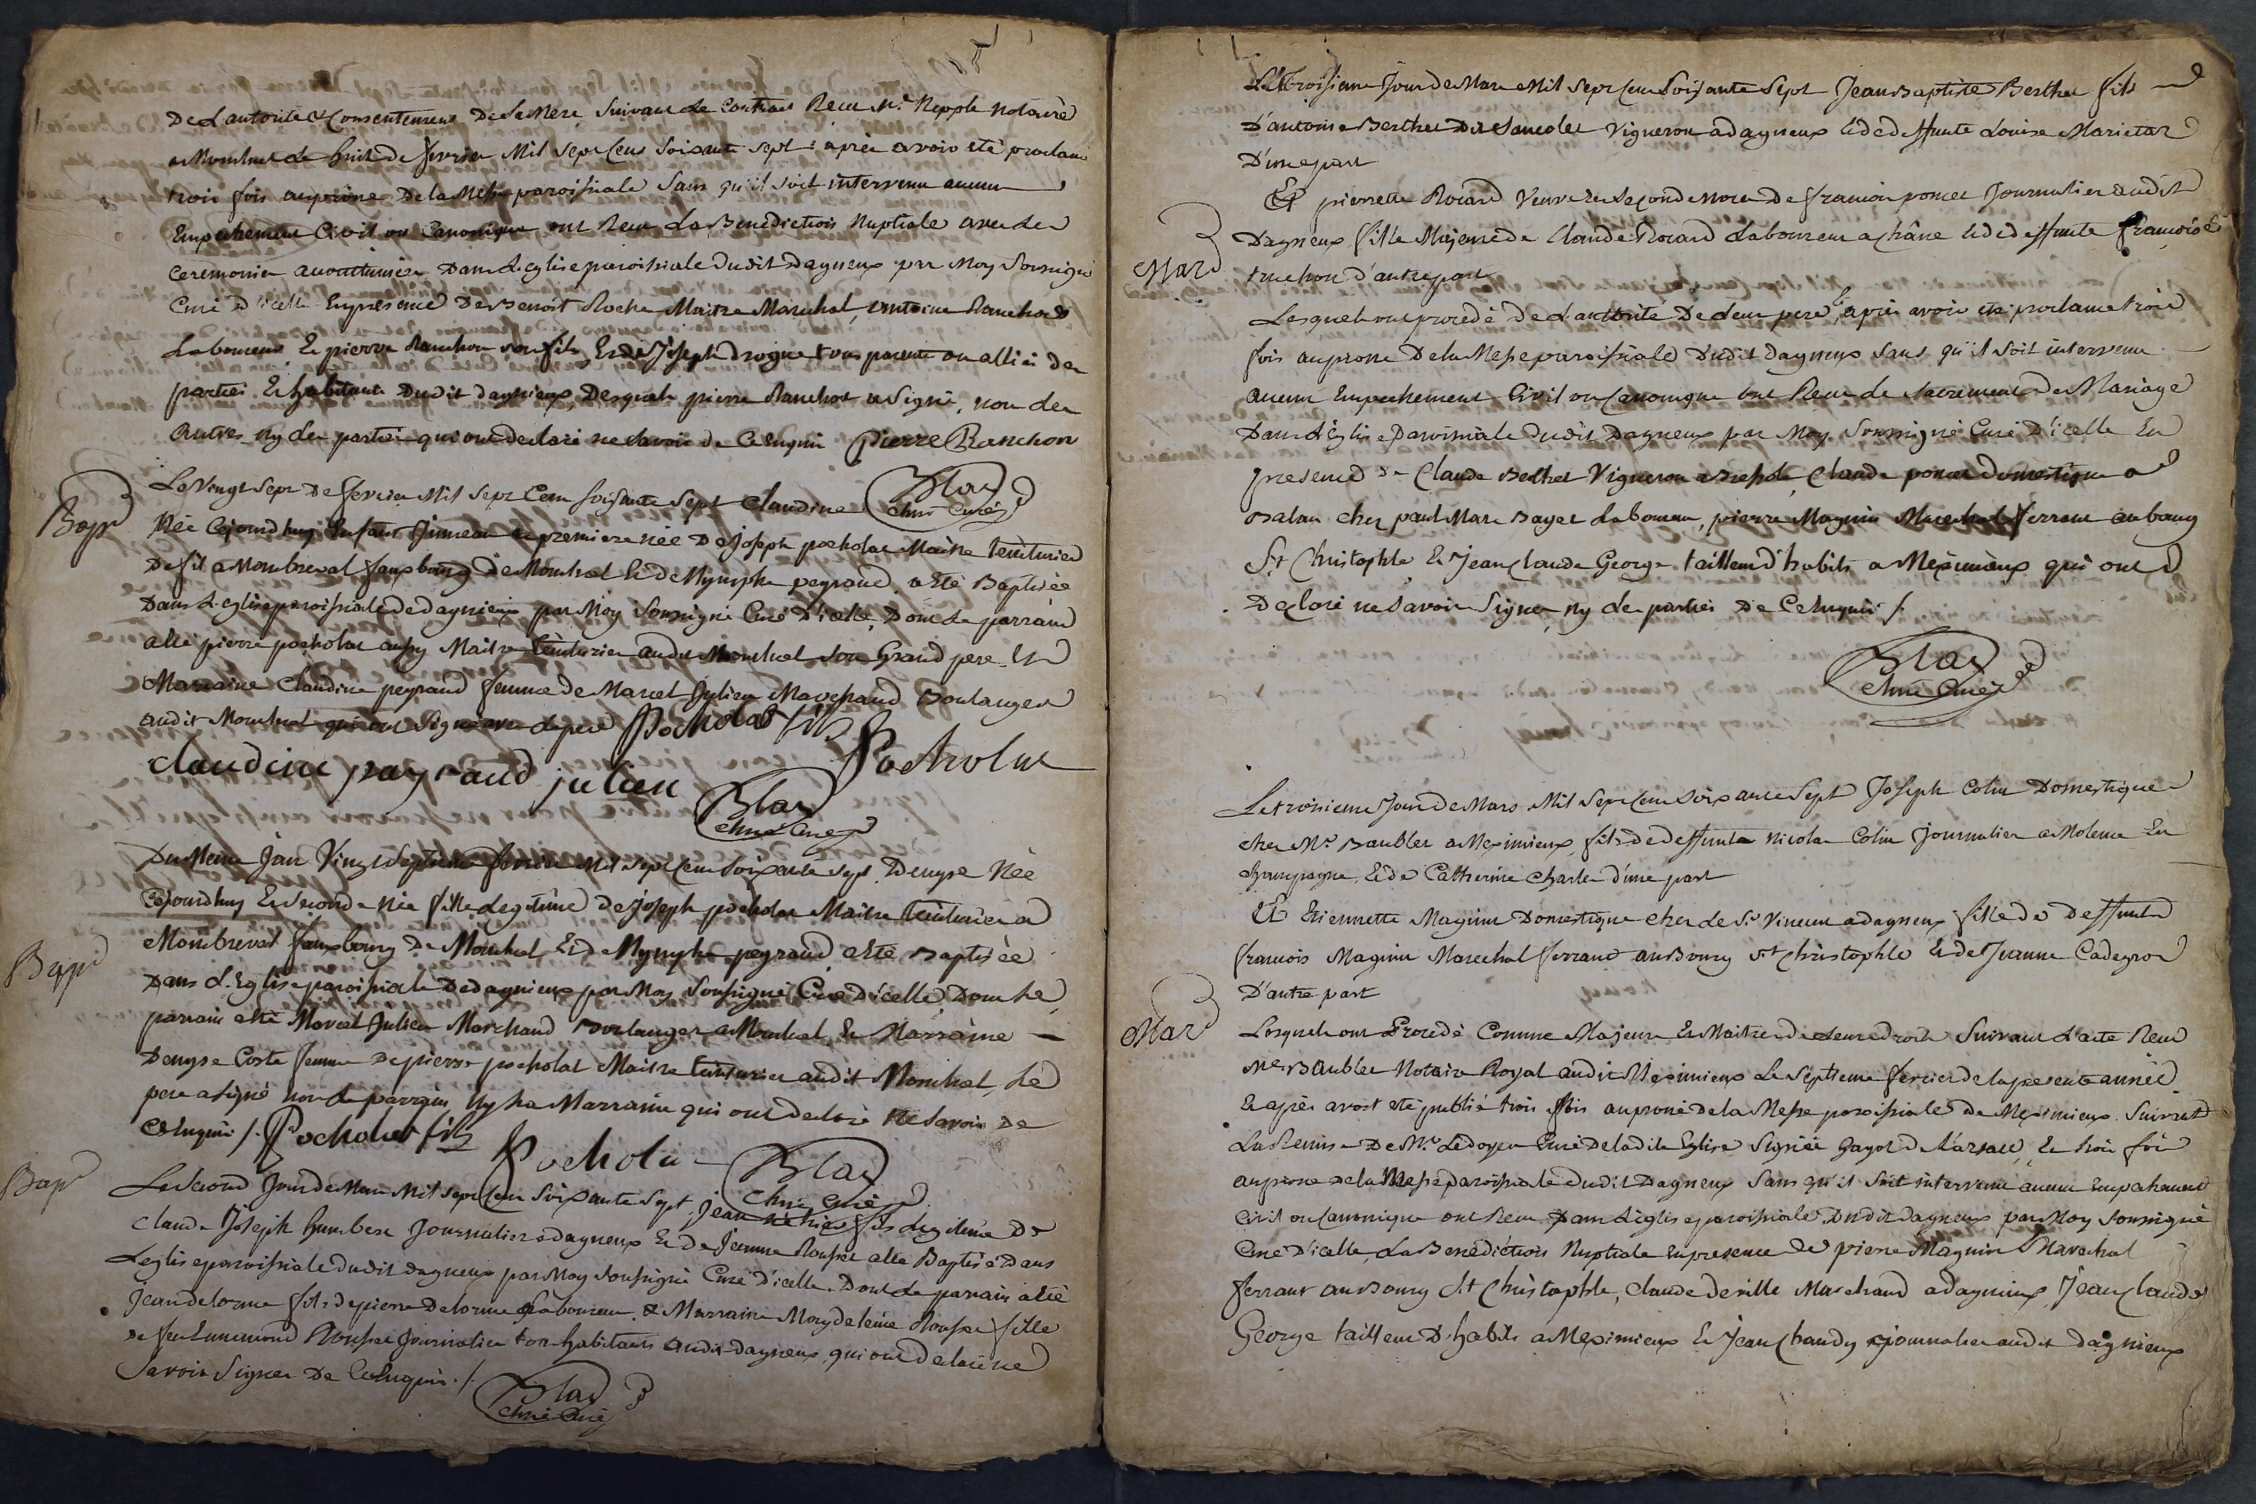 De L'autorité & Consentement De Sa Mere Suivant Le Contract Reçu Me. Nepple Notaire
a Montluel Le huit De fevrier Mil Sept Cens Soixante Sept : après avoir été proclamé
trois fois au prône De la Messe paroissiale Sans qu'il Soit intervenu aucun
Empechement Civil ou Canonique ont Reçu La Benediction Nuptiale avec Les
Ceremonies accoutumées Dans L'eglise paroissiale Dudit Dagneux par Moy Soussigné
Curé D'icelle En presence De Benoit Roche Maitre Marechal, antoine Ranchon
Laboureur, & pierre Ranchon son fils, & de Joseph tous parents ou alliés des
parties & habitants Dudit dagnieux, Desquels pierre Ranchon a Signé, non Les
autres ny Les parties qui ont Declaré ne Savoir De Ce Enquis Pierre Ranchon
Bap
Le Vingt Sept De fevrier Mil Sept Cens soixante Sept Claudine
Née Cejourdhuy Enfant Jumeau & premiere née De Joseph pocholat Maitre teinturier
De fil a Montbreval fauxbourg de Montluel & De Nymphe peyraud, a été Baptisée
Dans L'eglise paroissiale De dagnieux par Moy Soussigné Curé D'icelle, Dont Le parrain
a été pierre pocholat aussy Maitre teinturier audit Montluel son Grand pere &
Marraine Claudine peyraud femme de Marcel Julien Marchand Boulanger
audit Montluel qui ont Signé avec Le pere Pocholat fils
Pocholat
claudine payraud julien
Du Meme Jour Vingt Septieme fevrier Mil Sept Cens Soixante Sept. Denyse Née
Cejourdhuy & Seconde Née fille Legitime De Joseph pocholat Maitre teinturier a
Montbreval fauxbourg De Montluel & De Nymphe peyraud a été Baptisée
Bap
Dans L'Eglise paroissiale De dagnieux par Moy Soussigné Curé D'icelle, Dont Le
parrain a été Marcel Julien Marchand Boulanger a Montluel, & Marraine
Denyse Coste femme De pierre pocholat Maitre teinturier audit Montluel, Le
pere a signé non Le parrain Ny La Marraine qui ont declaré ne Savoir De
Ce Enquis /. Pocholat fils Pocholat
Bap
Le Second Jour de Mars Mil sept Cens Soixante Sept. Jean fils Legitime De
Claude Joseph humbert Journalier a dagneux & de Jeanne Rousset a été Baptisé Dans
L'eglise paroissiale dudit dagneux par Moy Soussigné Curé D'icelle. Dont Le parrain a été
Jean delorme fils de pierre Delorme Laboureur & Marraine Magdeleine Rousset fille
De feu Ennemond Rousset Journalier tous habitants audit dagneux, qui ont declaré ne
Savoir Signer De Ce Enquis. /.
Le troisieme Jour de Mars Mil Sept Cens Soixante Sept Jean Baptiste Berthet fils
D'antoine Berthet Dit Vigneron a dagneux & De deffunte Louise Marietar
D'une part
Et pierrette Rocard Veuve En Seconde Noces De francois poncet Journalier audit
Dagneux fille Majeure de Claude Rocard Laboureur a chane & de deffunte françoise
truchon d'autre part
Mar
Lesquels ont procedé De L'autorité De Leur pere, & après avoir été proclamé trois
fois au prone De la Messe paroissiale Dudit dagneux Sans qu'il Soit intervenu
aucun Empechement Civil ou Canonique ont Reçu Le Sacrement De Mariage
Dans L'Eglise Paroissiale Dudit Dagneux par Moy Soussigné Curé D'icelle En
presence De Claude Berthet Vigneron a , Claude poncet Domestique a
Balan chez paul Marc Bayet Laboureur, pierre Magnin Marechal ferrant au bourg
St Christophle & Jean Claude George tailleur D'habits a Meximieux qui ont
Declaré ne Savoir Signer, ny Les parties De Ce Enquis /.
Le troisieme Jour de Mars Mil Sept Cens Soixante Sept Joseph Colin Domestique
chez Mr. Baublet a Meximieux, fils De deffunt Nicolas Colin Journalier a Moleme En
Champagne, & De Catherine Charles d'une part
Et Etiennette Magnin Domestique chez Le Sr. Vincent a dagneux fille De Deffunt
francois Magnin Marechal ferrant au Bourg St Christophle & de Jeanne
D'autre part
Mar
Lesquels ont Procedé Comme Majeurs & Maitres de Leurs droits Suivant L'acte Reçu
Me. Baublet Notaire Royal audit Meximieux Le Septieme fevrier de la presente année
& après avoir été publié trois fois au prone de la Messe paroissiale De Meximieux Suivant
La Remise De Mr. Ledoyen Curé De ladite Eglise Signée , & trois fois
au prone de la Messe paroissiale Dudit Dagneux Sans qu'il Soit intervenu aucun Empechement
Civil ou Canonique ont Reçu Dans L'eglise paroissiale Dudit dagneux par Moy Soussigné
Curé D'icelle, La Benediction Nuptiale En presence De pierre Magnin Marechal
ferrant au Bourg St Christophle, Claude Deville Marchand a dagnieux, Jean Claude
George tailleur D'habits a Meximieux & Jean Chaudy journalier audit dagnieux